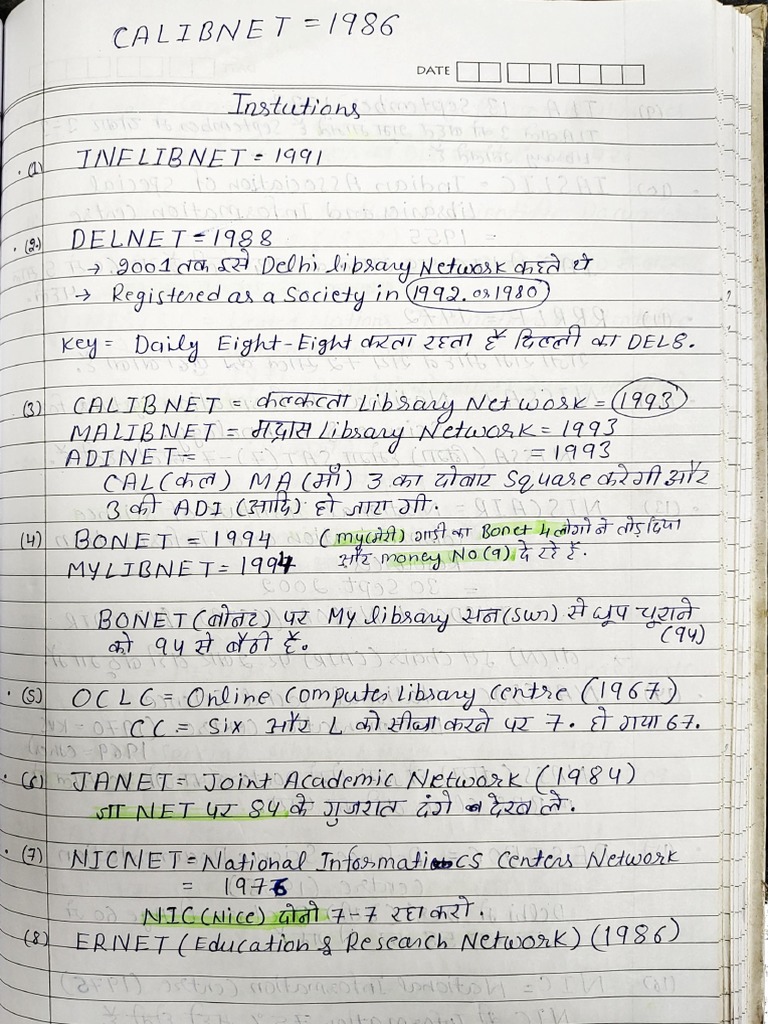 CALIBNET = 1986
DATE
Instutions
(1) INFLIBNET = 1991
(2.) DELNET = 1988
→ 2001 तक इसे Delhi library Network कहते थे
→ Registered as a Society in 1992. or 1980
Key = Daily Eight-Eight करता रहता हैं दिल्ली का DEL8.
(3) CALIBNET = कलकत्ता Library Network = 1993
MALIBNET = मद्रास Library Network = 1993
ADINET = = 1993
CAL (कल) MA (माँ) 3 का दोबार Square करेगी और
3 की ADI (आदि) हो जाएगी.
(4) BONET = 1994 (my(मेरी) गाड़ी का Bonet 4 लोगो ने तोड़ दिया
MYLIBNET = 1994 और money No (9) दे रहे हैं.
BONET (बोनट) पर My library सन (Sun) से धूप चूराने
को 94 से बैठी हैं. (94)
(5) OCLC = Online Computer Library Centre (1967)
CC = Six और L को सीधा करने पर 7. हो गया 67.
(6) JANET = Joint Academic Network (1984)
जा NET पर 84 के गुजरात दंगे देख ले.
(7) NICNET = National Informatics Centers Network
= 1976
NIC (Nice) दोनो 7-7 रहा करो.
(8) ERNET (Education & Research Network) (1986)